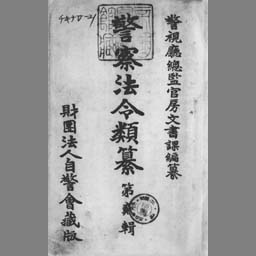 警視廳總監官房文書課編纂
警察法令類纂
第貳輯
財團法人自警會藏版